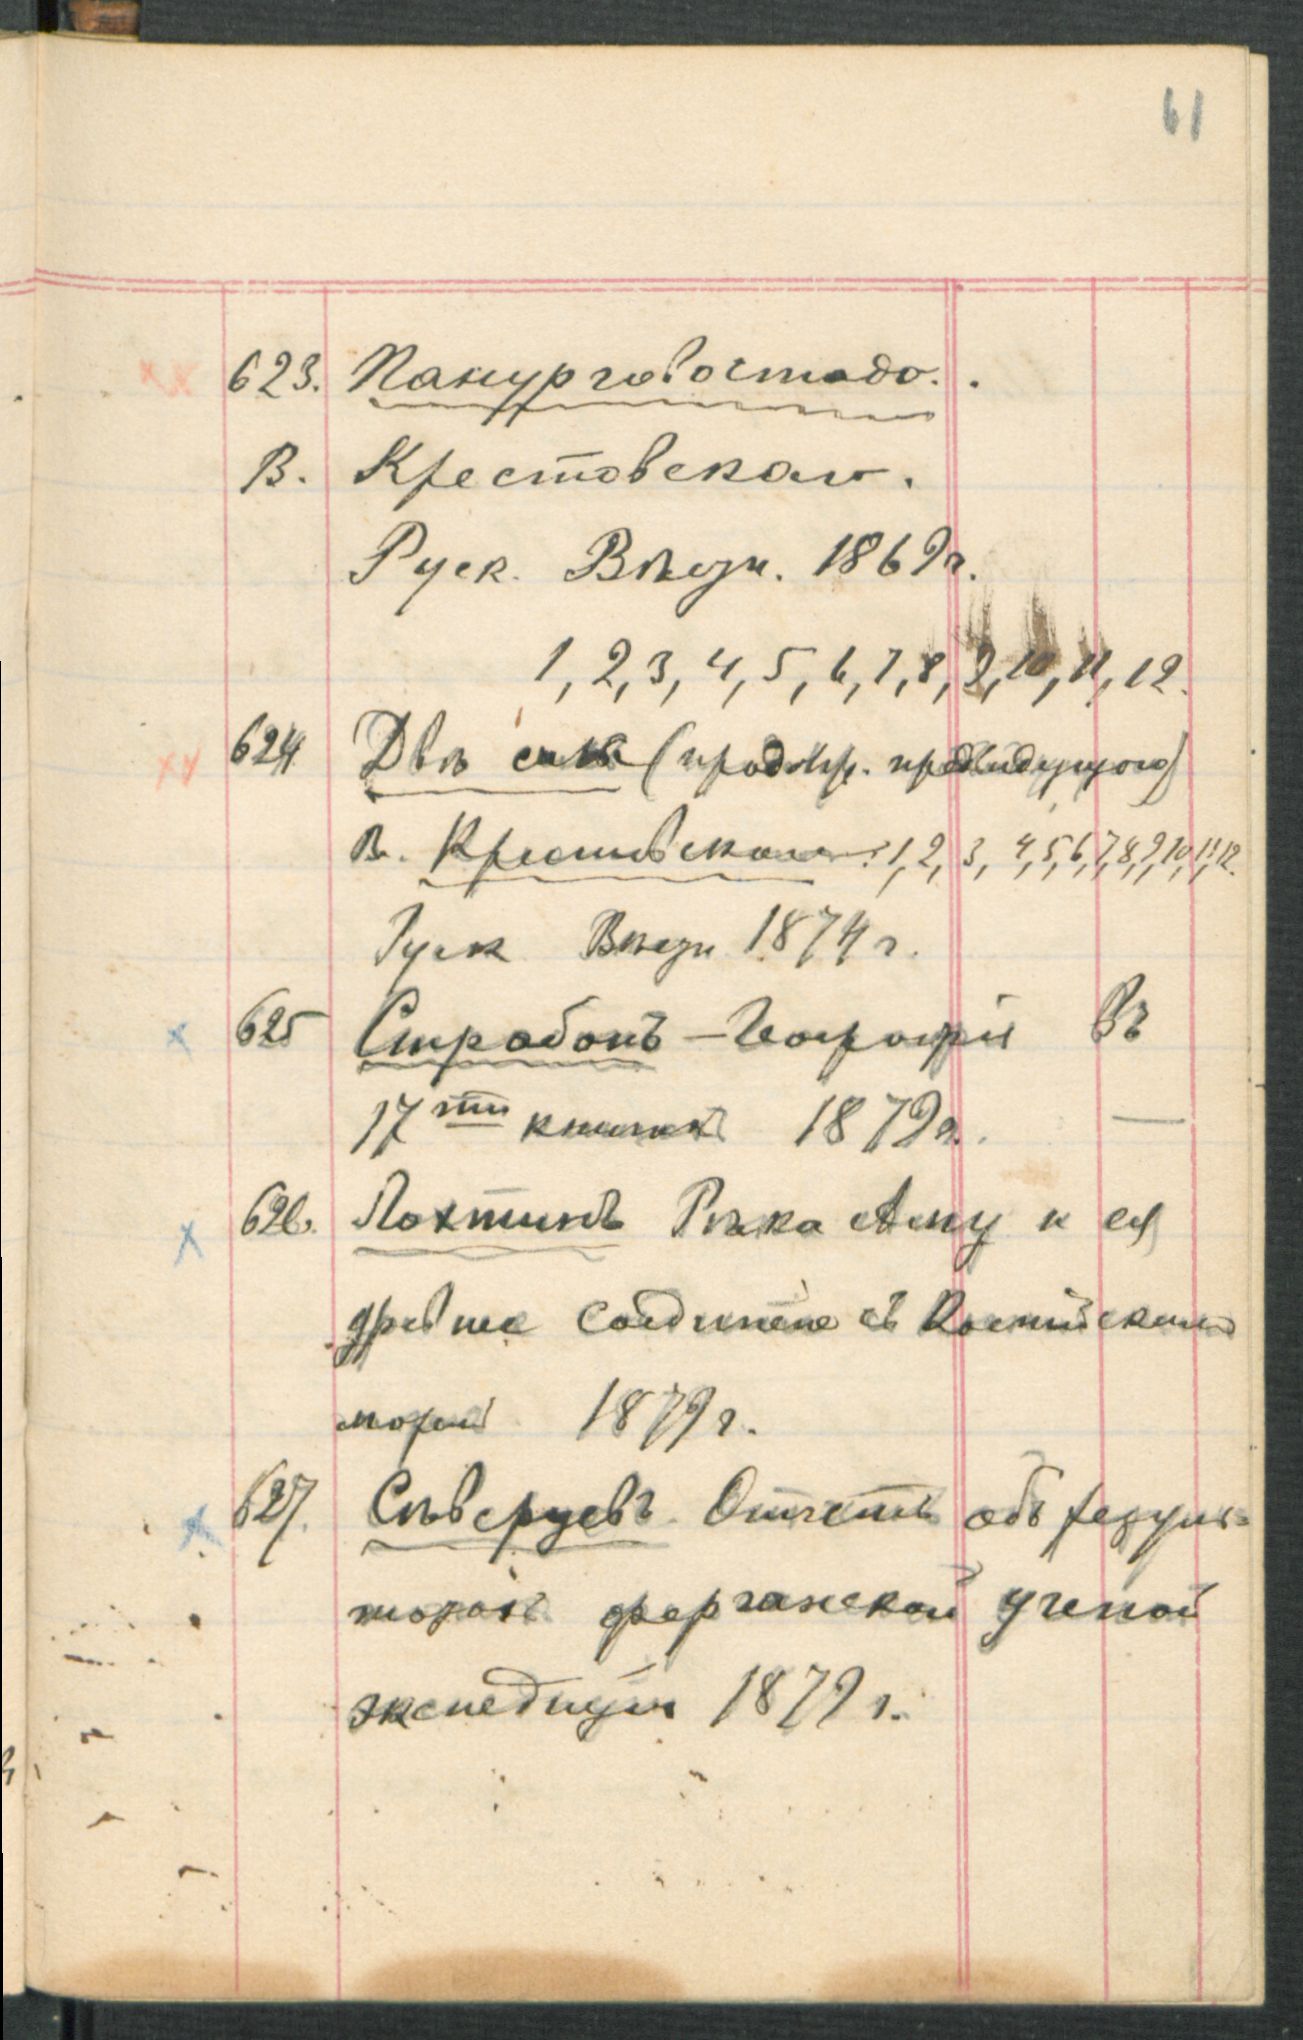 61
623. Панургово стадо.
В. Крестовскаго.
Руск. Вѣстн. 1869 г.
1, 2, 3, 4, 5, 6, 7, 8, 9, 10, 11, 12.
624 Двѣ силы (продолж. предъидущаго)
В. Крестовскаго. 1, 2, 3, 4, 5, 6, 7, 8, 9, 10, 11, 12.
Руск Вѣстн 1874 г.
625 Страбонъ – Географія Въ
17ти книгахъ 1879 г. —
626. Лохтинъ Рѣка Аму и ея
древнее соединеніе съ Каспійскимъ
моремъ 1879 г.
627. Сѣверцевъ. Отчетъ объ резуль=
татахъ ферганской ученой
экспедиціи 1879 г.